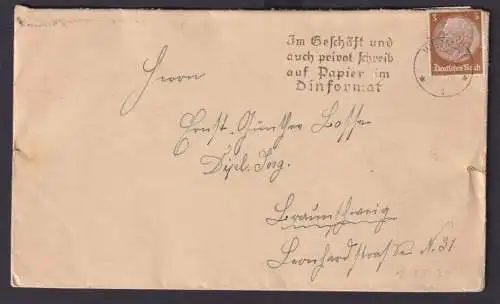 Im Geschäft und
auch privat schreib
auf Papier im
Dinformat
3
Deutsches Reich
Herrn
Ernst-Günther Bosse
Dipl. Ing.
Braunschweig
Leonhardstraße N. 31